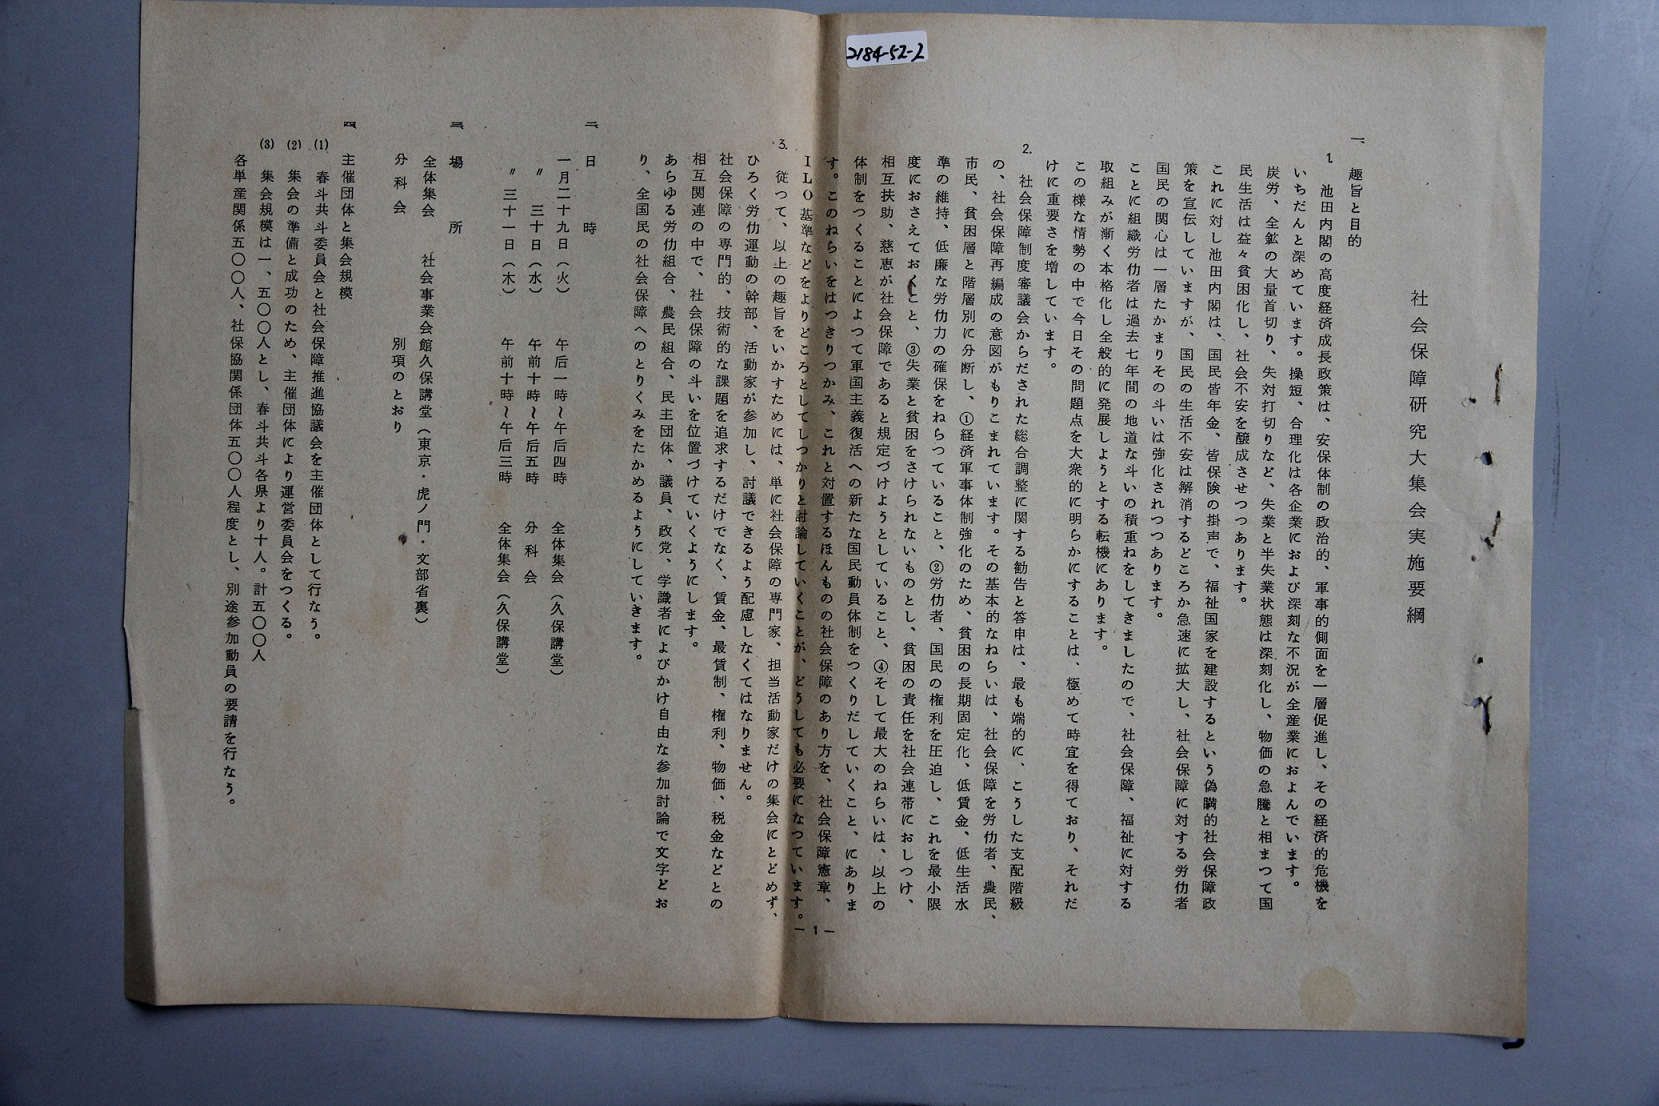 2184-52-2
社会保障研究大集会実施要綱
一、趣旨と目的
1. 池田内閣の高度経済成長政策は、安保体制の政治的、軍事的側面を一層促進し、その経済的危機を
いちだんと深めています。操短、合理化は各企業におよび深刻な不況が全産業におよんでいます。
炭労、全鉱の大量首切り、失対打切りなど、失業と半失業状態は深刻化し、物価の急騰と相まつて国
民生活は益々貧困化し、社会不安を醸成させつつあります。
これに対し池田内閣は、国民皆年金、皆保険の掛声で、福祉国家を建設するという偽瞞的社会保障政
策を宣伝していますが、国民の生活不安は解消するどころか急速に拡大し、社会保障に対する労仂者
国民の関心は一層たかまりその斗いは強化されつつあります。
ことに組織労仂者は過去七年間の地道な斗いの積重ねをしてきましたので、社会保障、福祉に対する
取組みが漸く本格化し全般的に発展しようとする転機にあります。
この様な情勢の中で今日その問題点を大衆的に明らかにすることは、極めて時宜を得ており、それだ
けに重要さを増しています。
2. 社会保障制度審議会からだされた総合調整に関する勧告と答申は、最も端的に、こうした支配階級
の、社会保障再編成の意図がもりこまれています。その基本的なねらいは、社会保障を労仂者、農民、
市民、貧困層と階層別に分断し、①経済軍事体制強化のため、貧困の長期固定化、低賃金、低生活水
準の維持、低廉な労仂力の確保をねらつていること、②労仂者、国民の権利を圧迫し、これを最小限
度におさえておくこと、③失業と貧困をさけられないものとし、貧困の責任を社会連帯におしつけ、
相互扶助、慈恵が社会保障であると規定づけようとしていること、④そして最大のねらいは、以上の
体制をつくることによつて軍国主義復活への新たな国民動員体制をつくりだしていくこと、にありま
す。このねらいをはつきりつかみ、これと対置するほんものの社会保障のあり方を、社会保障憲章、
ILO基準などをよりどころとしてしつかりと討論していくことが、どうしても必要になつています。
3. 従つて、以上の趣旨をいかすためには、単に社会保障の専門家、担当活動家だけの集会にとどめず、
ひろく労仂運動の幹部、活動家が参加し、討議できるよう配慮しなくてはなりません。
社会保障の専門的、技術的な課題を追求するだけでなく、賃金、最賃制、権利、物価、税金などとの
相互関連の中で、社会保障の斗いを位置づけていくようにします。
あらゆる労仂組合、農民組合、民主団体、議員、政党、学識者によびかけ自由な参加討論で文字どお
り、全国民の社会保障へのとりくみをたかめるようにしていきます。
二、日 時
一月二十九日(火) 午后一時〜午后四時 全体集会(久保講堂)
〃 三十日(水) 午前十時〜午后五時 分科会
〃 三十一日(木) 午前十時〜午后三時 全体集会(久保講堂)
三、場 所
全体集会 社会事業会館久保講堂(東京・虎ノ門・文部省裏)
分科会 別項のとおり
四、主催団体と集会規模
(1) 春斗共斗委員会と社会保障推進協議会を主催団体として行なう。
(2) 集会の準備と成功のため、主催団体により運営委員会をつくる。
(3) 集会規模は一、五〇〇人とし、春斗共斗各県より十人。計五〇〇人
各単産関係五〇〇人、社保協関係団体五〇〇人程度とし、別途参加動員の要請を行なう。
— 1 —